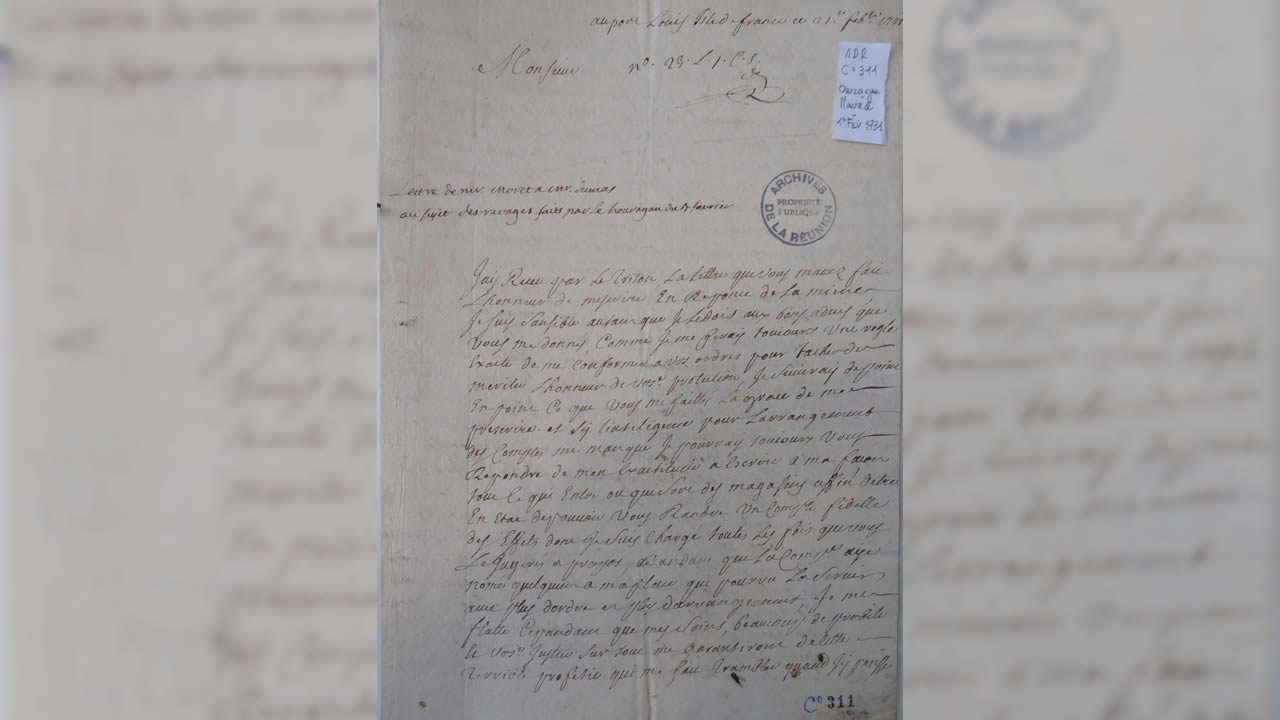 au port Louis Isle de france ce 21.
Monsieur n° 23. L. 1. C. S.
ADR
C° 311
Ouragan
1er Fév 1731
Lettre de mr. moret a mr. dumas
au sujet des ravages faits par le houragan du fevrier
ARCHIVES
DE LA RÉUNION
PROPRIÉTÉ
PUBLIQUE
J'ais Receu par Le Triton La Lettre que vous mavez fait
L'honneur de mescrire En Reponse de La mienne
Je suis sansible autant que Je Le dois aux bons advis que
vous me donnés, Comme Je me ferais toujours une regle
Exacte de me conformer a vos ordres pour tacher de
meriter L'honneur de vostre protection, Je suivrais de point
En point Ce que vous me faittes La grace de me
prescrire et sy L'intelligence pour L'arrangement
des Comptes me manque Je pourray toujours vous
Repondre de mon Exactitude a Escrire a ma facon
tout Ce qui Entre ou que sort des magasins affin d'etre
En Etat de pouvoir vous Randre un Compte fidelle
des Effets dont Je suis Chargé toutes Les fois que vous
Le Jugeres a propos, Et andant que La Comp. aye
nomé quelquun a ma place qui pourra La servir
avec plus d'ordre et plus d'arrangement, Je me
flatte Cepandant que mes soins, beaucoup de probité
le vostre Justice sur tout me garantiront de cette
terrible profetie qui me fait Trambler quand J'y pense
C° 311